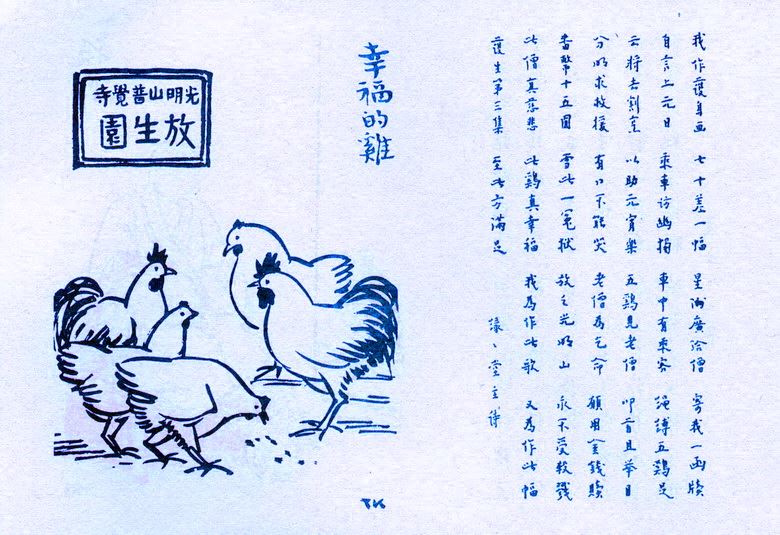 我作護生画 七十差一幅 星洲廣洽僧 寄我一函牘
自言上元日 乘車訪幽獨 車中有乘客 繩縛五鷄足
云將去割烹 以助元宵樂 五鷄見老僧 叩首且舉目
分明求救援 有口不能哭 老僧為乞命 願用金錢贖
番幣十五圓 雪此一冤獄 放之光明山 永不受殺戮
此僧真慈悲 此鷄真幸福 我為作此歌 又為作此幅
護生第三集 至此方滿足 緣緣堂主詩
幸福的雞
光明山普覺寺
放生園
TK